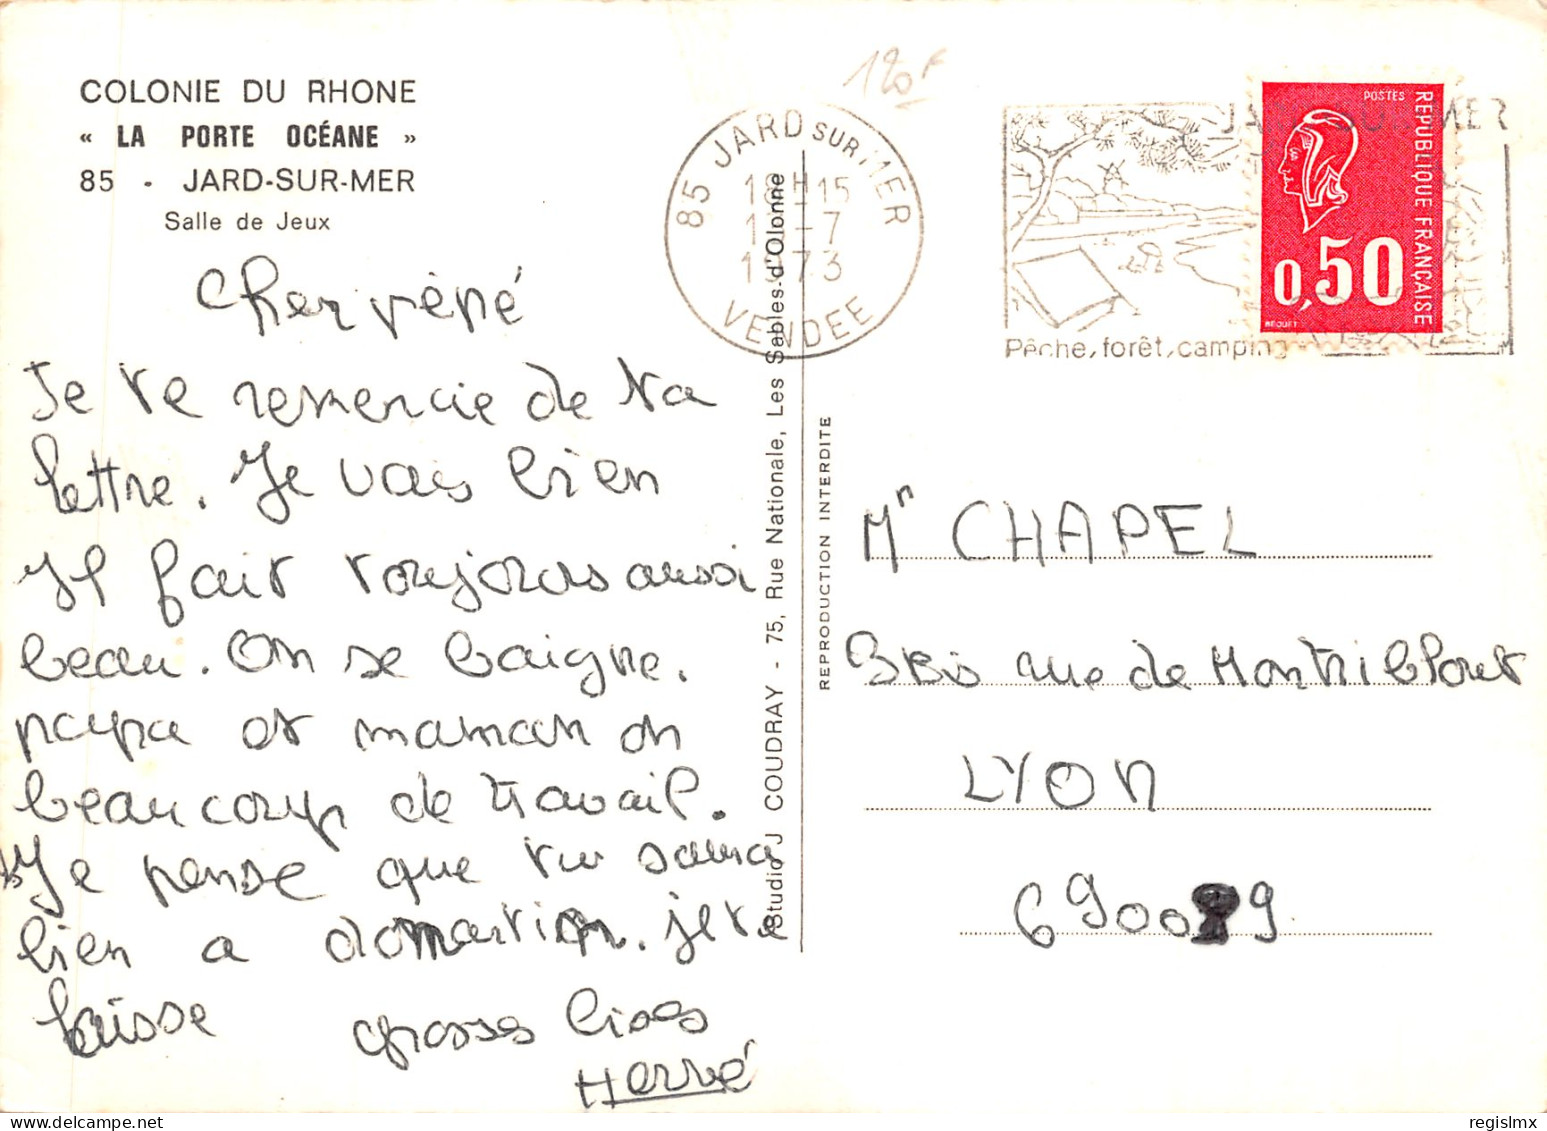 COLONIE DU RHONE
« LA PORTE OCÉANE »
85 - JARD-SUR-MER
Salle de Jeux
Cher pépé
Je te remercie de ta
lettre. Je vais bien
Il fait toujours aussi
beau. On se baigne.
papa et maman on
beaucoup de travail.
Je pense que tu sauna
bien a domartin. je te
laisse grosses bises
Hervé
Studio J COUDRAY - 75, Rue Nationale, Les Sables-d'Olonne
REPRODUCTION INTERDITE
120F
85 JARD SUR MER
18H15
-7
1973
VENDEE
JARD SUR MER
Pêche, forêt, camping
POSTES
REPUBLIQUE FRANÇAISE
0,50
BEQUET
Mr CHAPEL
3Bis rue de Montriblout
LYON
69009
regislmx